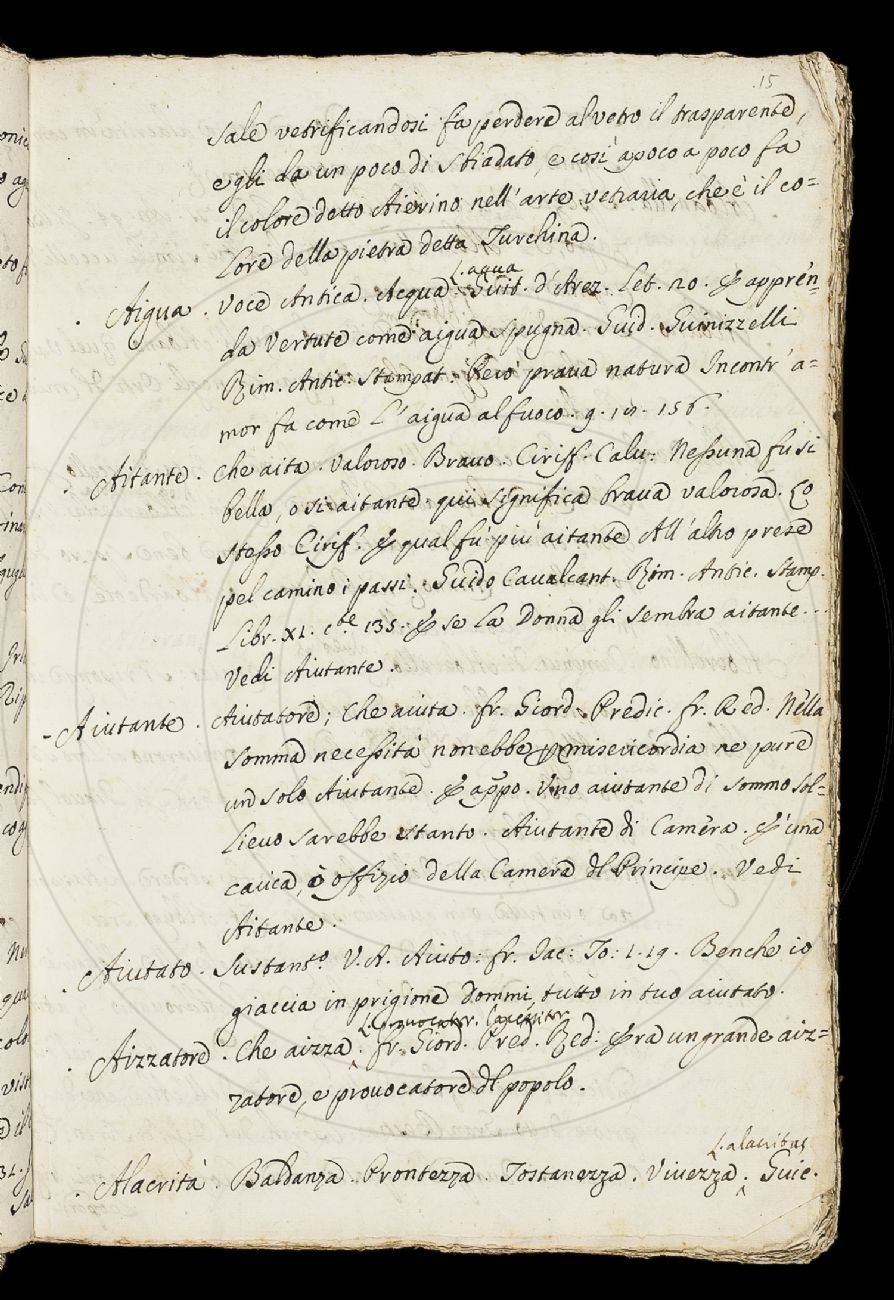 15
Sale vetrificandosi fa perdere al vetro il trasparente,
e gli da un poco di sbiadato, e così apoco a poco fa
il colore detto Aierino nell'arte vetraria, che è il co=
lore della pietra detta Turchina.
L. aqua
Aigua. Voce Antica. Acqua. Guit. d'Arez. Let. 20. E appren=
da Vertute come aigua spugna. Guid. Guinizzelli
Rim. Antic. Stampat. Però prava natura Incontr' a=
mor fa come l'aigua al fuoco. 156.
Aitante. Che aita. Valoroso. Bravo. Ciriff. Calv: Nessuna fu si
bella, o si aitante qui significa brava valorosa. Lo
stesso Ciriff. E qual fù più aitante All'altro prese
pel camino i passi. Guido Cavalcant. Rim. Antic. Stamp.
Libr. XI. c.te 135. E se la Donna gli sembra aitante...
Vedi Aiutante
Aiutante. Aiutatore; Che aiuta. fr. Giord. Predic. fr. Red. Nella
somma necessità non ebbe misericordia ne pure
un solo Aiutante. E appo. Uno aiutante di sommo sol=
lievo sarebbe stanto. Aiutante di Camera. E' una
carica, ò offizio della Camera dl Principe. Vedi
Aitante.
Aiutato. Sustant.o V.A. Aiuto: fr. Iac: To: 1. 19. Benche io
giaccia in prigione Dommi tutto in tuo aiutato.
Aizzatore. Che aizza. fr. Giord. Pred. Red: Era un grande aiz=
zatore, e provocatore dl popolo.
L. alacritas
Alacrità. Baldanza. Prontezza. Tostanezza. Vivezza. Guic.